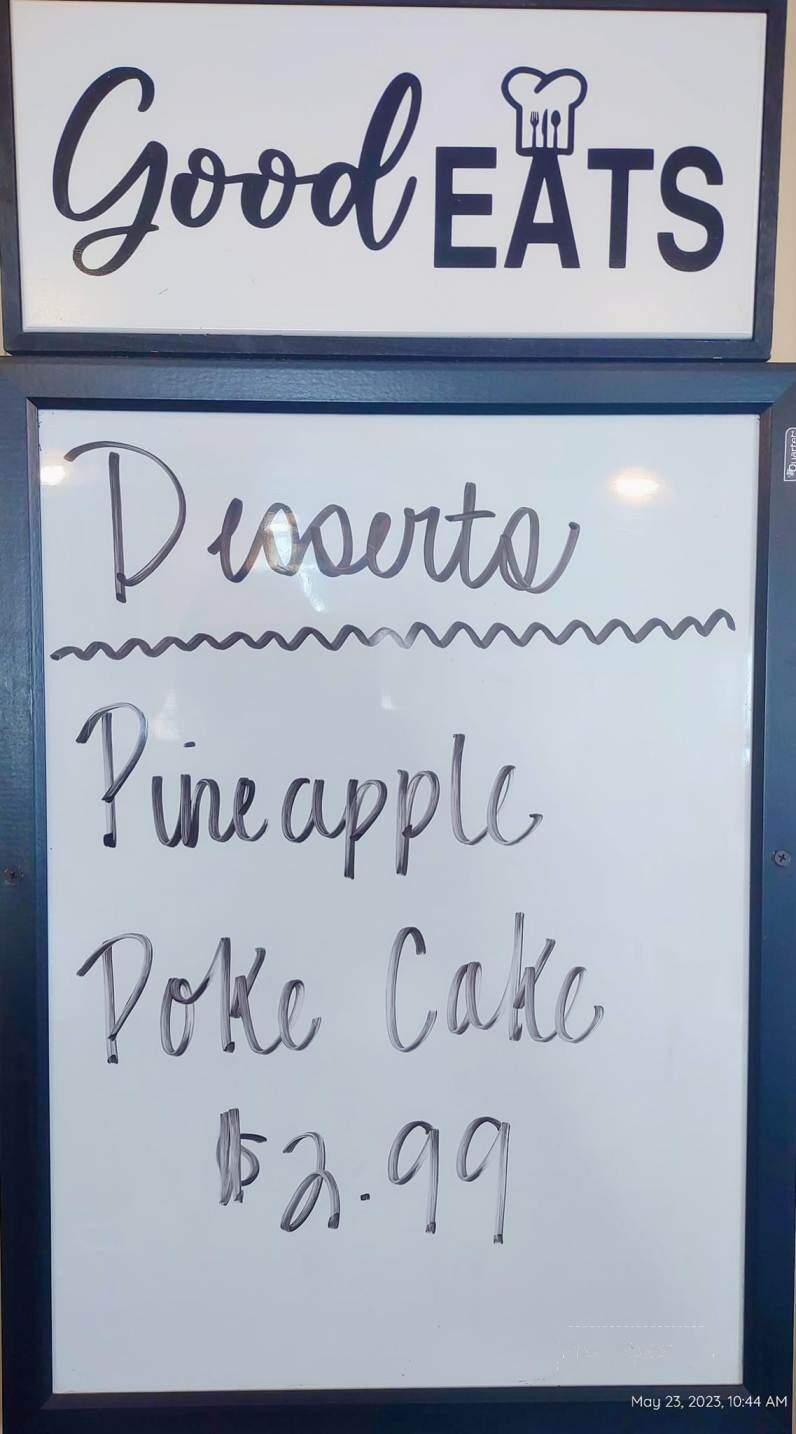 Good EATS
Desserts
Quartet
Pineapple
Poke Cake
$2.99
May 23, 2023, 10:44 AM